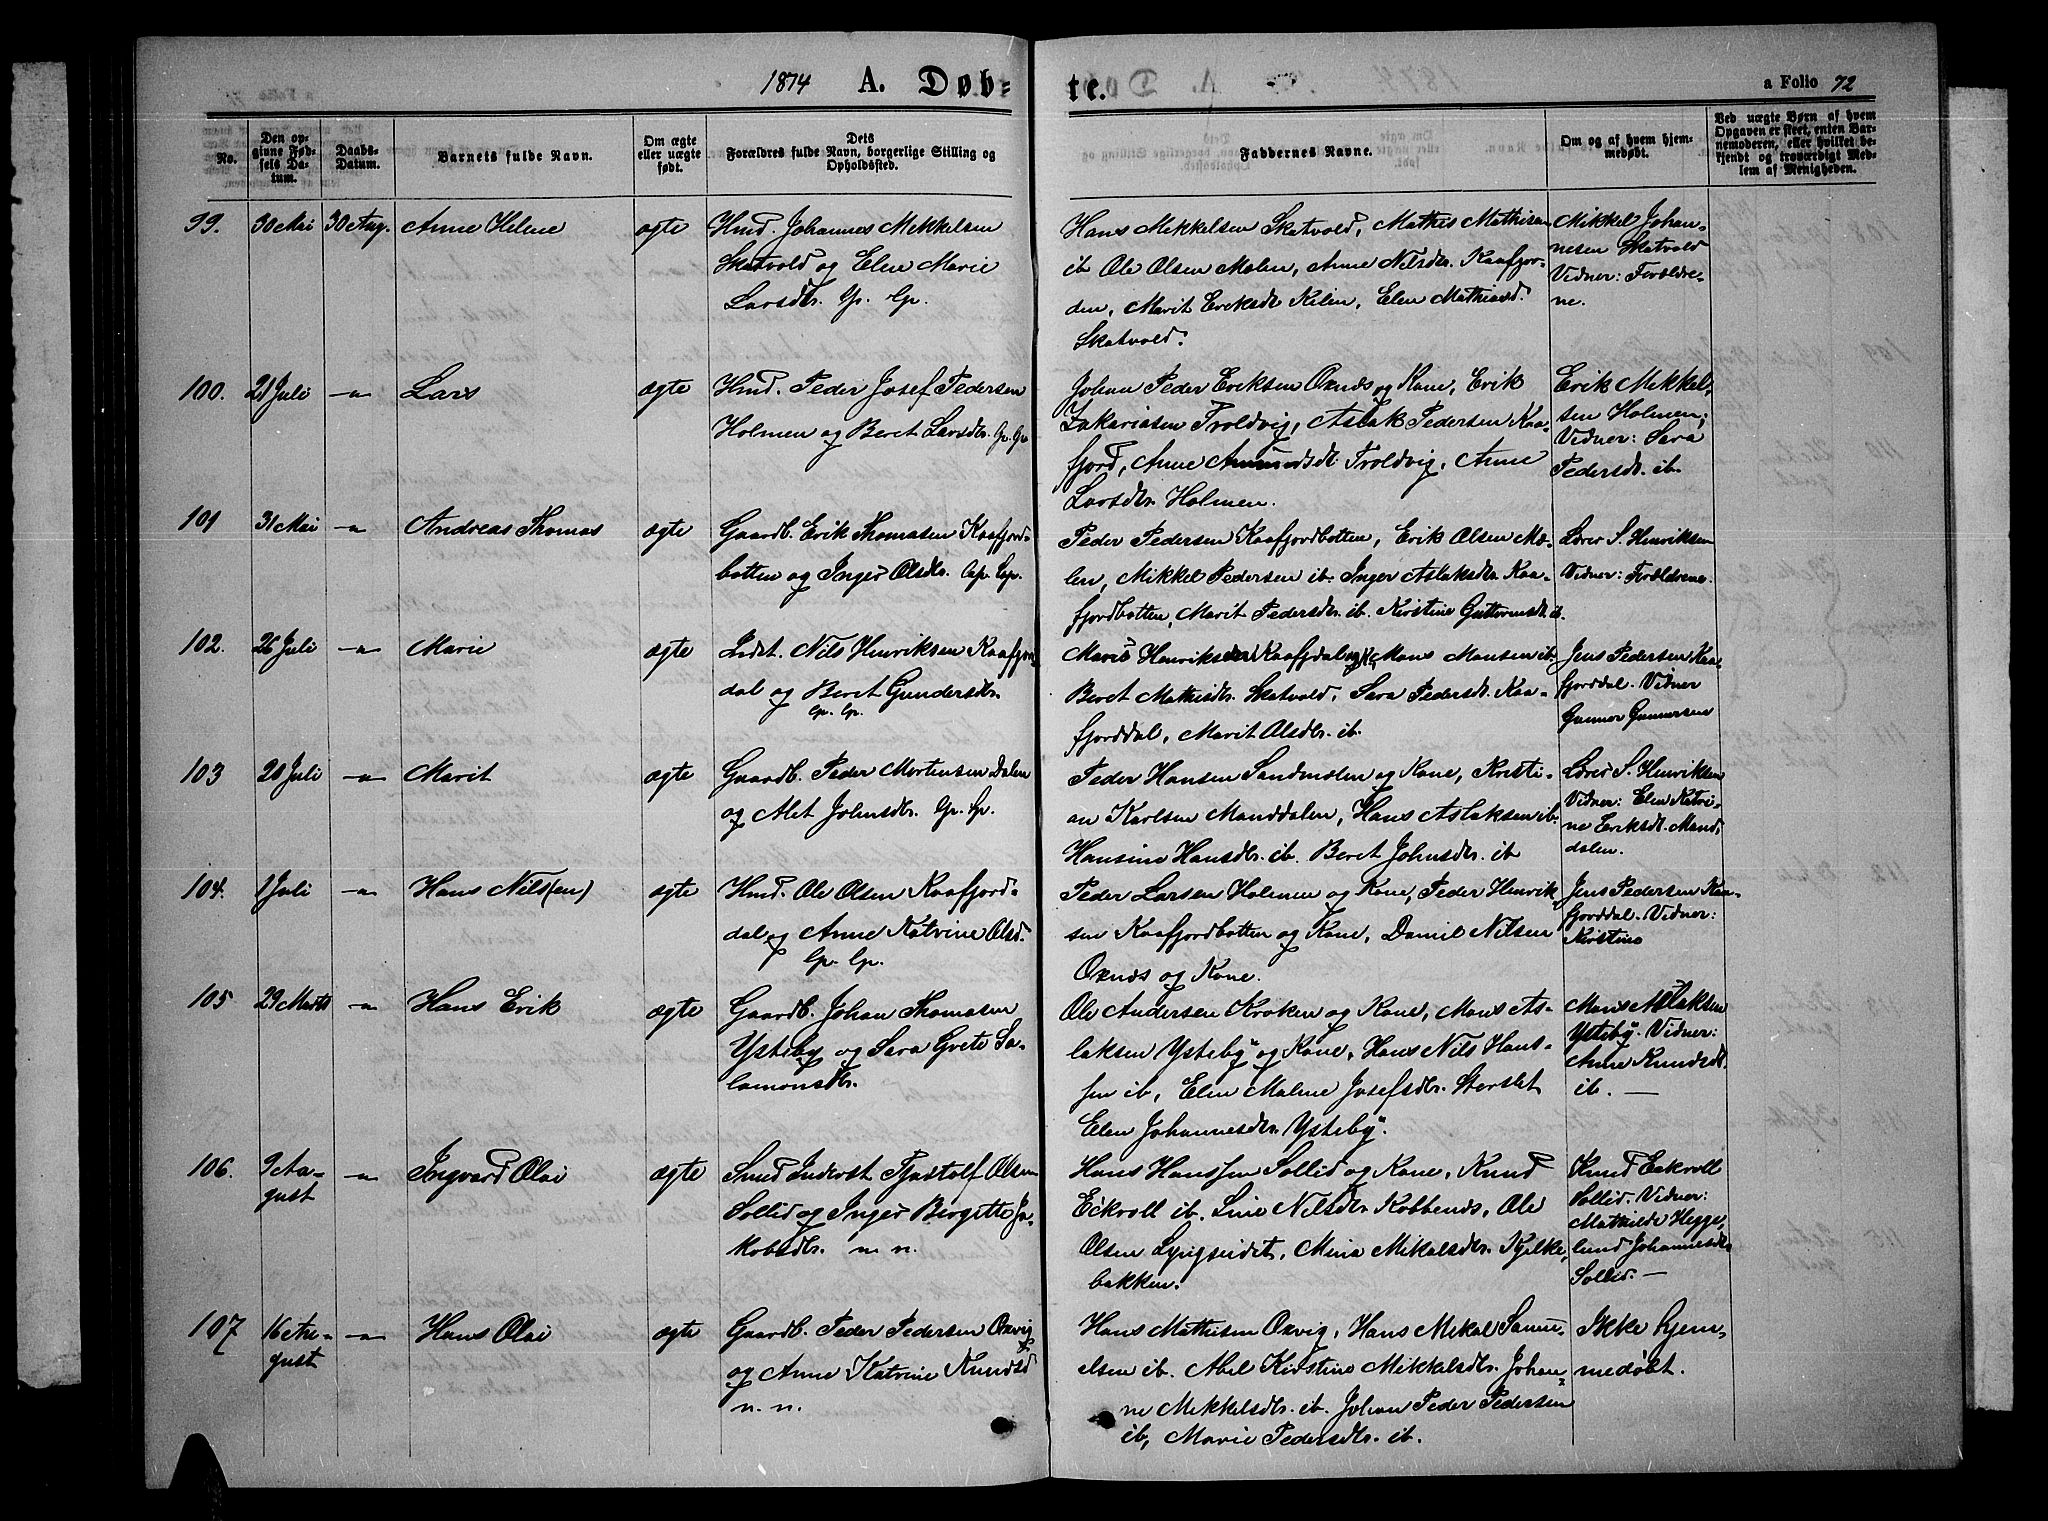 1874 A. Døb-
te.
a Folio 72
No.
Den op-
givne Fød-
sels Da-
tum.
Daabs-
Datum.
Barnets fulde Navn.
Om ægte
eller uægte
født.
Dets
Forældres fulde Navn, borgerlige Stilling og
Opholdssted.
Faddernes Navne.
Om og af hvem hjem-
medøbt.
Ved uægte Børn af hvem
Opgaven er skeet, enten Bar-
nemoderen, eller hvilket be-
kjendt og troværdigt Med-
lem af Menigheden.
99. 30 Mai 30 Aug. Anne Helene ægte
Hmd. Johannes Mekkelsen
Skatvold og Elen Marie
Larsdtr. Gp. Gp.
Hans Mekkelsen Skatvold, Mathis Mathisen
ib. Ole Olsen Molen, Anne Nilsdtr. Kaafjor-
den, Marit Eriksdt. Kilen, Elen Mathisd.
Skatvold.
Mikkel Johan-
nesen Skatvold
Vidner: Forældre-
ne.
100. 21 Juli -"- Lars ægte
Hmd. Peder Josef Pedersen
Holmen og Beret Larsdtr. Gp. Gp
Johan Peder Eriksen Oxnæs og Kone, Erik
Zakariasen Troldvig, Aslak Pedersen Kaa-
fjord, Anne Amundsdt. Troldvig, Anne
Larsdtr. Holmen.
Erik Mekkel-
sen Holmen;
Vidner: Sara
Pedersdtr. ib.
101 31 Mai -"- Andreas Thomas ægte
Gaardb. Erik Thomasen Kaafjord-
botten og Inger Olsdtr. Gp. Gp.
Peder Pedersen Kaafjordbotten, Erik Olsen Mo-
len, Mikkel Pedersen ib. Inger Aslaksdtr. Kaa-
fjordbotten, Marit Pedersdtr. ib. Kirstine Guttormsdt. ib.
Lærer S. Henriksen
Vidner: Forældrene.
102. 26 Juli -"- Marie ægte
Indst. Nils Henriksen Kaafjord
dal og Beret Gundersdtr.
Gp. Gp.
Henriksen Kaafjdal og K, Mons Monsen ib.
Beret Mathisdtr. Skatvold, Sara Pedersdt. Kaa-
fjorddal, Marit Olsdtr. ib.
Jens Pedersen Kaa-
fjorddal. Vidner
Gunnor Gunnersen
103 20 Juli -"- Marit ægte
Gaardb. Peder Mortensen Dalen
og Alet Johnsdtr. Gp. Gp.
Peder Hansen Sandmolen og Kone, Kristi-
an Karlsen Manddalen, Hans Aslaksen ib.
Hansine Hansdtr. ib. Beret Johnsdtr. ib
Lærer S. Henriksen
Vidner: Elen Katri-
ne Eriksdt. Mand-
dalen.
104. 1 Juli -"- Hans Nils(en) ægte
Hmd. Ole Olsen Kaafjord-
dal og Anne Katrine Olsd.
Gp. Gp.
Peder Larsen Holmen og Kone, Peder Henrik
sen Kaafjordbotten og Kone, Daniel Nilsen
Oxnæs og Kone.
Jens Pedersen Kaa-
fjorddal. Vidner:
Kirstine
105 29 Marts -"- Hans Erik ægte
Gaardb. Johan Thomasen
Ysteby og Sara Grete Sa-
lamonsdtr.
Ole Andersen Kroken og Kone, Mons As-
laksen Ysteby og Kone, Hans Nils Hans-
sen ib, Elen Malene Josefsdtr. Storslet
Elen Johannesdtr. Ysteby.
Mons Aslaksen
Ysteby. Vidner:
Anne Knudsdt.
ib. -
106. 9 Au-
gust -"- Ingvard Olai ægte
Smed Inderst Tjostolf Olsen
Sollid og Inger Birgitte Ja-
kobsdtr. n. n.
Hans Hanssen Sollid og Kone, Knud
Eckroll ib. Line Nilsdtr Kobbenes, Ole
Olsen Lyngseidet, Mina Mikalsdtr. Kjelke-
bakken.
Knud Eckroll
Sollid. Vidner:
Mathilde Hegge-
lund Johannesdtr
Sollid. -
107 16 Au-
gust -"- Hans Olai ægte
Gaardb. Peder Pedersen Oxvig
og Anne Katrine Knudsd
n. n.
Hans Mathisen Oxvig, Hans Mikal Samu-
elsen ib. Abel Kirstine Mikkelsdtr. Johan-
ne Mekkelsdtr. ib. Johan Peder Pedersen
ib, Marie Pedersdtr. ib.
Ikke hjem-
medøbt.